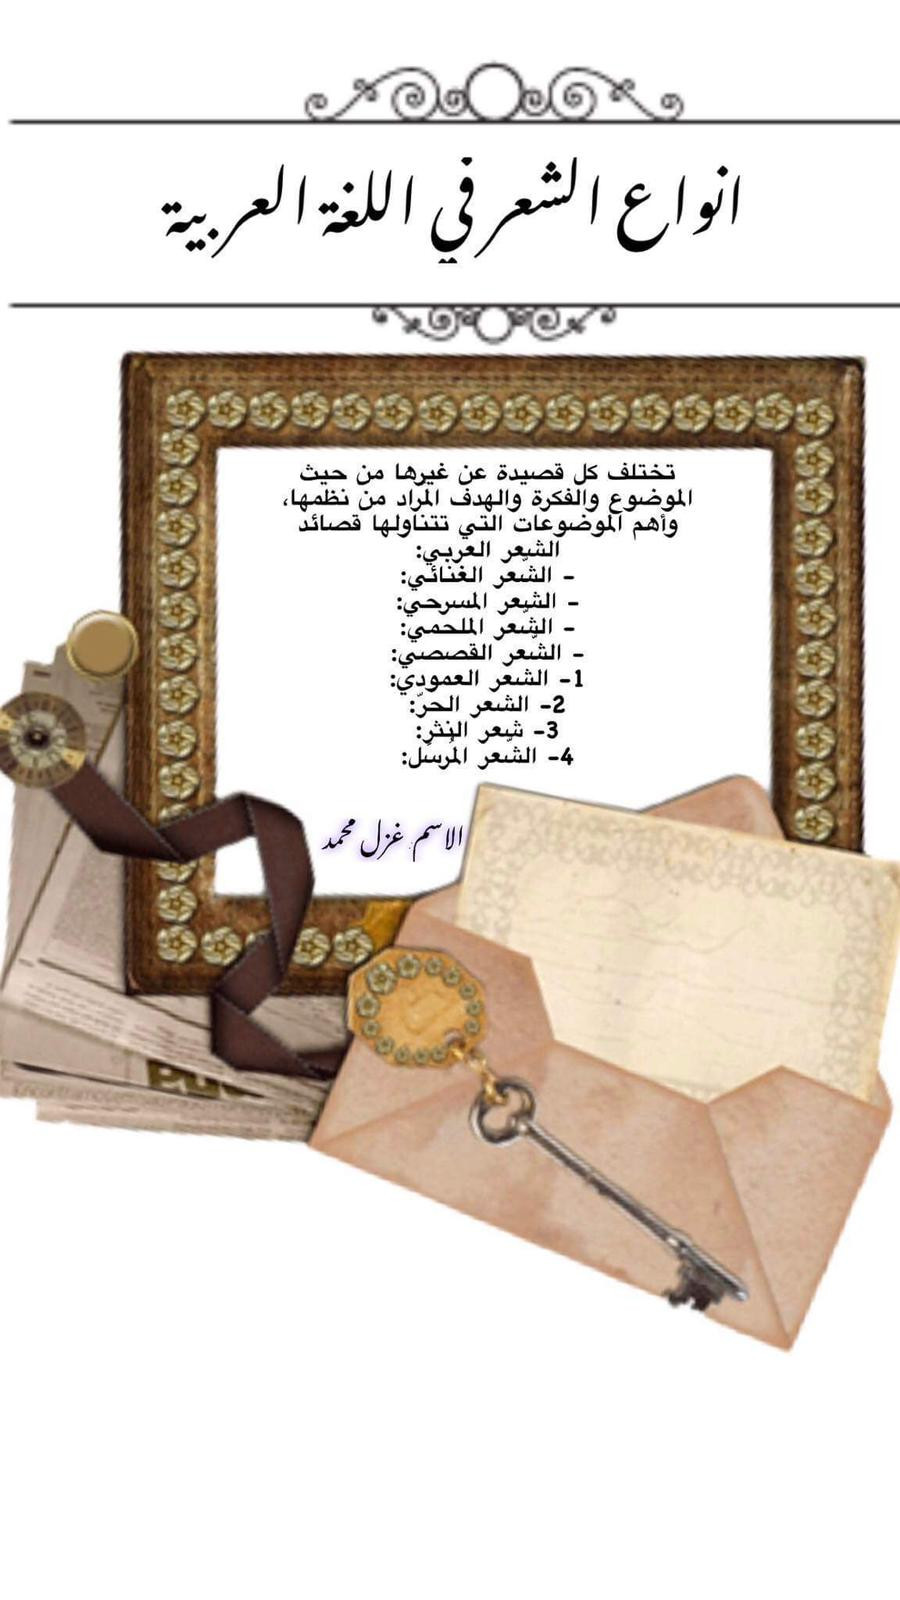 انواع الشعر في اللغة العربية
تختلف كل قصيدة عن غيرها من حيث
الموضوع والفكرة والهدف المراد من نظمها،
وأهم الموضوعات التي تتناولها قصائد
الشّعر العربي:
- الشّعر الغنائي:
- الشّعر المسرحي:
- الشّعر الملحمي:
- الشّعر القصصي:
1- الشّعر العمودي:
2- الشّعر الحرّ:
3- شعر النثر:
4- الشّعر المُرسَل:
الاسم: غزل محمد